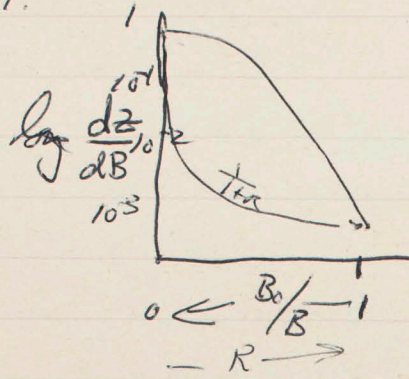 1
10⁻¹
log dz/dB
10⁻²
10⁻³
0 ← B₀/B — 1
— R →